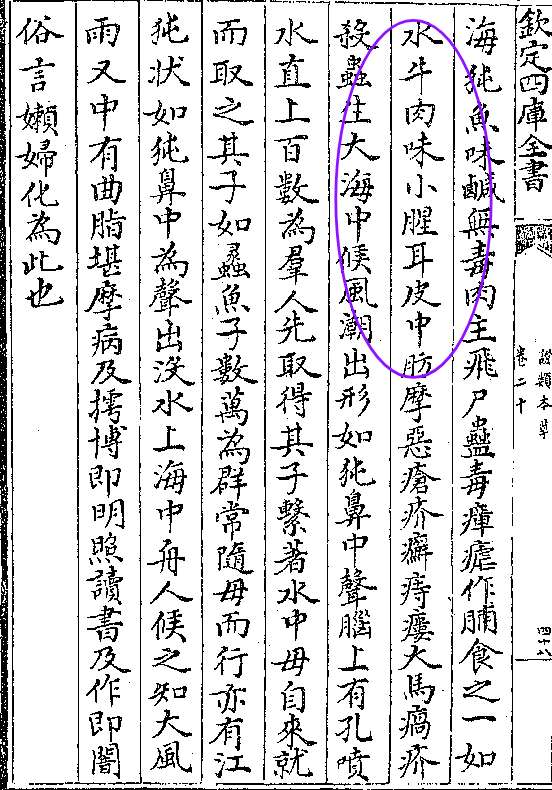 欽定四庫全書
證類本草
卷二十
四十八
海㹠魚味鹹無毒肉主飛尸蠱毒瘴瘧作脯食之一如
水牛肉味小腥耳皮中肪摩惡瘡疥癬痔瘻犬馬瘑疥
殺蟲生大海中候風潮出形如㹠鼻中聲腦上有孔噴
水直上百數為羣人先取得其子繫著水中母自來就
而取之其子如蠡魚子數萬為群常隨母而行亦有江
㹠狀如㹠鼻中為聲出没水上海中舟人候之知大風
雨又中有曲脂堪摩病及摴博即明照讀書及作即闇
俗言嬾婦化為此也